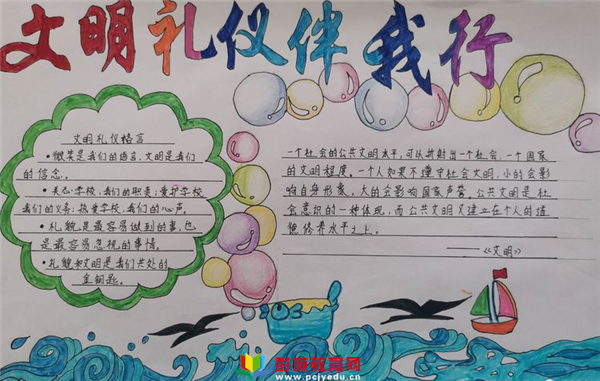 文明礼仪伴我行
文明礼仪格言
·微笑是我们的语言,文明是我们
的信念。
·关心学校,我们的职责;爱护学校,
我们的义务;热爱学校,我们的心声。
·礼貌是最容易做到的事,也
是最容易忽视的事情。
·礼貌和文明是我们共处的
金钥匙。
一个社会的公共文明水平,可以折射出一个社会、一个国家
的文明程度。一个人如果不遵守社会文明,小的会影
响自身形象,大的会影响国家声誉。公共文明是社
会意识的一种体现,而公共文明又建立在个人的道
德修养水平之上。
——《文明》
彭城教育网
www.pcjyedu.cn